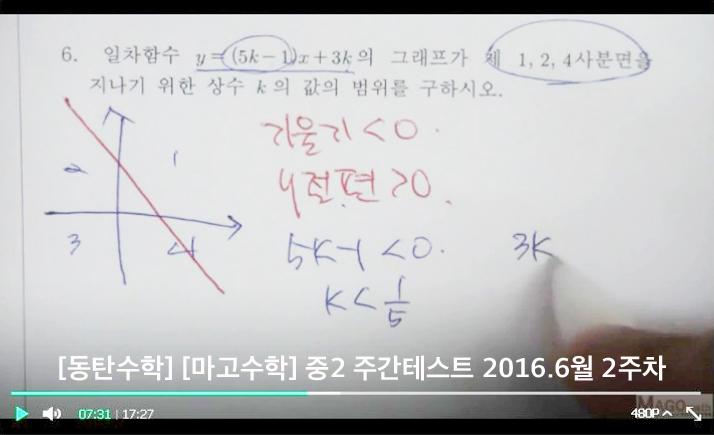 6. 일차함수 y=(5k-1)x+3k의 그래프가 제 1, 2, 4사분면을
지나기 위한 상수 k의 값의 범위를 구하시오.
기울기 < 0.
2 1
y절편 > 0.
3 4
5k-1 < 0. 3k
k < 1/5
[동탄수학] [마고수학] 중2 주간테스트 2016.6월 2주차
07:31 | 17:27 480P